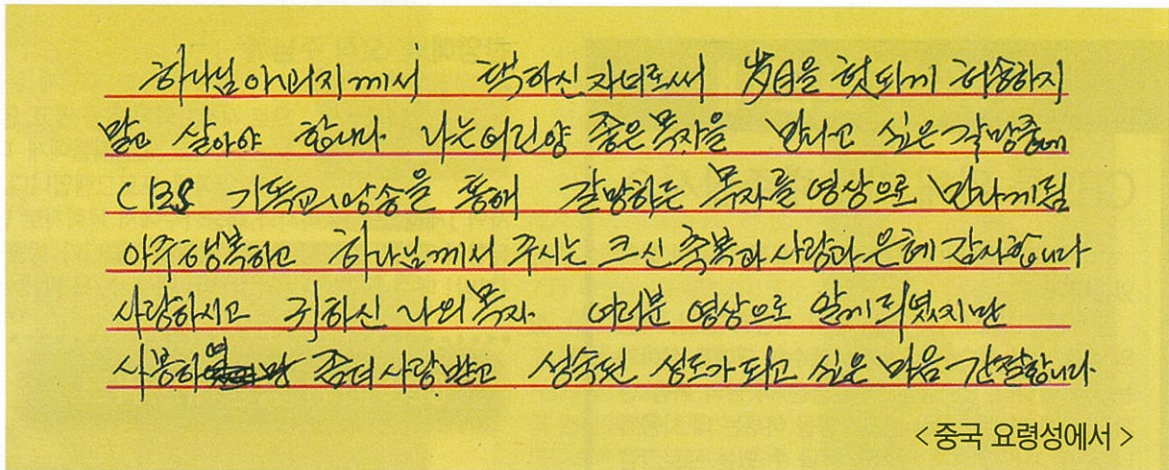 하나님 아버지께서 택하신 자녀로써 岁月을 헛되게 허송하지
말고 살아야 합니다 나는 어린양 좋은 목자을 만나고 싶은 갈망중에
CBS 기독교방송을 통해 갈망하든 목자를 영상으로 만나게됨
아주 행복하고 하나님께서 주시는 크신 축복과 사랑과 은혜 감사합니다
사랑하시고 귀하신 나의 목자 여러분 영상으로 알게 되였지만
좀더 사랑 받고 성숙된 성도가 되고 싶은 마음 간절합니다.
<중국 요령성에서>